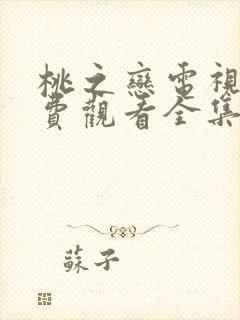 桃之戀電視
費觀看全集
蘇子